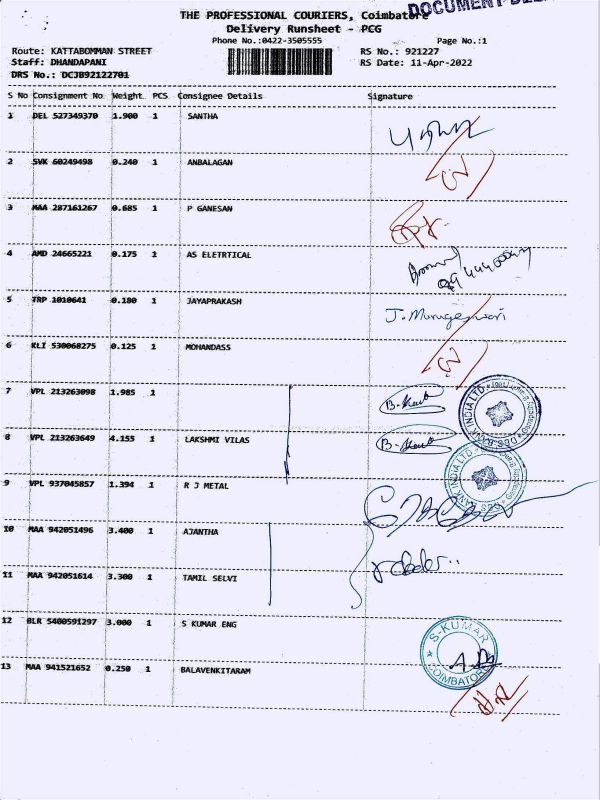 THE PROFESSIONAL COURIERS, Coimbatore
Delivery Runsheet - PCG
Phone No.:0422-3505555 Page No.:1
Route: KATTABOMMAN STREET RS No.: 921227
Staff: DHANDAPANI RS Date: 11-Apr-2022
DRS No.: DCJB92122701
S No Consignment No Weight PCS Consignee Details Signature
1 DEL 527349370 1.900 1 SANTHA
2 SVK 60249498 0.240 1 ANBALAGAN
3 MAA 287161267 0.685 1 P GANESAN
4 AMD 24665221 0.175 1 AS ELETRTICAL
5 TRP 1010641 0.180 1 JAYAPRAKASH J. Murugeswari
6 KLI 530068275 0.125 1 MOHANDASS
7 VPL 213263098 1.985 1
8 VPL 213263649 4.155 1 LAKSHMI VILAS
9 VPL 937045857 1.394 1 R J METAL
10 MAA 942051496 3.400 1 AJANTHA
11 MAA 942051614 3.300 1 TAMIL SELVI
12 BLR 5400591297 3.000 1 S KUMAR ENG
S-KUMAR
COIMBATORE
13 MAA 941521652 0.250 1 BALAVENKITARAM